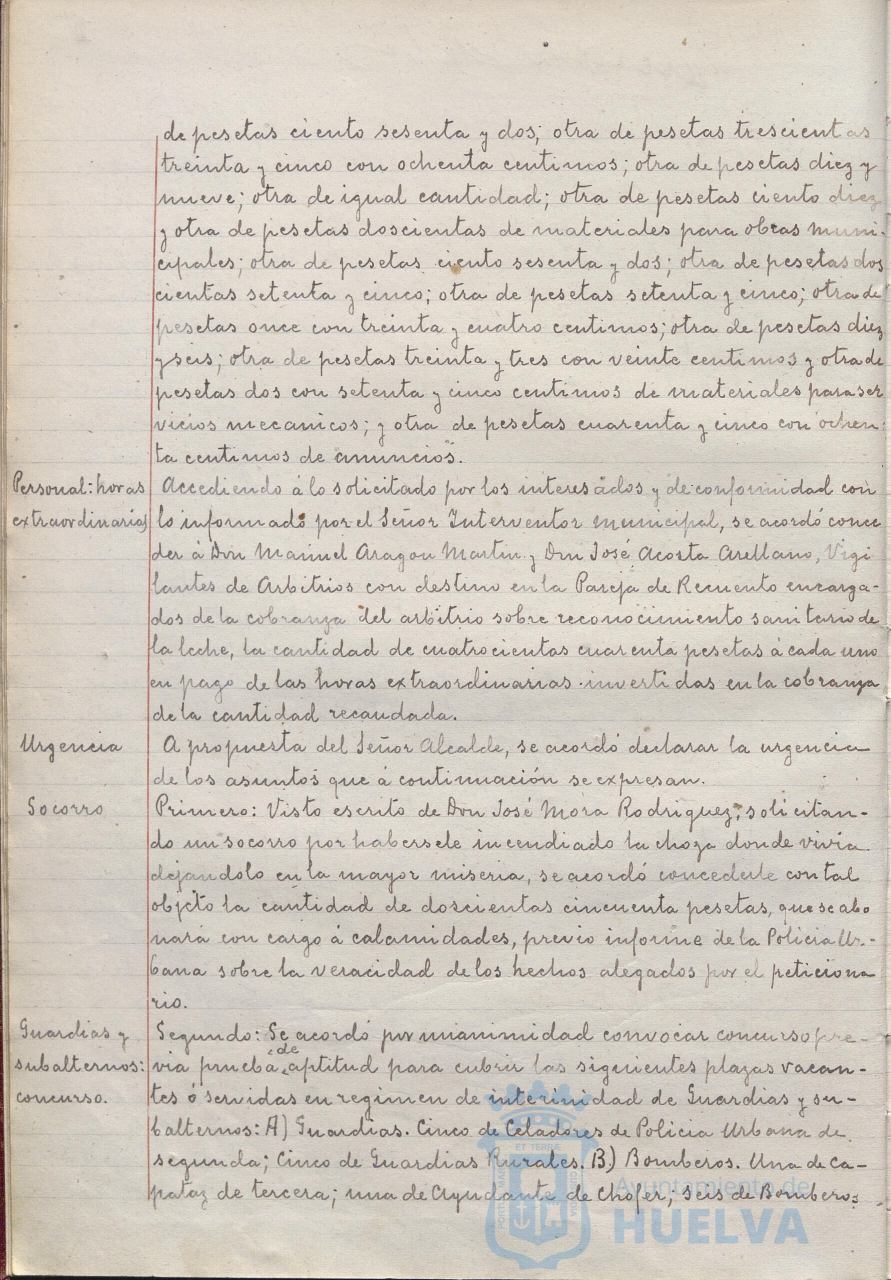 de pesetas ciento sesenta y dos; otra de pesetas trescientas
treinta y cinco con ochenta centimos; otra de pesetas diez y
nueve; otra de igual cantidad; otra de pesetas ciento diez
y otra de pesetas doscientas de materiales para obras muni-
cipales; otra de pesetas ciento sesenta y dos; otra de pesetas dos
cientas setenta y cinco; otra de pesetas setenta y cinco; otra de
pesetas once con treinta y cuatro centimos; otra de pesetas diez
y seis; otra de pesetas treinta y tres con veinte centimos y otra de
pesetas dos con setenta y cinco centimos de materiales para ser
vicios mecanicos; y otra de pesetas cuarenta y cinco con ochen-
ta centimos de anuncios.
Personal: horas
extraordinarias
Accediendo á lo solicitado por los interesados y de conformidad con
lo informado por el Señor Interventor municipal, se acordó conce
der á Don Manuel Aragon Martin y Don José Acosta Arellano, Vigi
lantes de Arbitrios con destino en la Pareja de Recuento encarga-
dos de la cobranza del arbitrio sobre reconocimiento sanitario de
la leche, la cantidad de cuatrocientas cuarenta pesetas á cada uno
en pago de las horas extraordinarias invertidas en la cobranza
de la cantidad recaudada.
Urgencia
A propuesta del Señor Alcalde, se acordó declarar la urgencia
de los asuntos que á continuación se expresan.
Socorro
Primero: Visto escrito de Don José Mora Rodriguez, solicitan-
do un socorro por habersele incendiado la choza donde vivía
dejandolo en la mayor miseria, se acordó concederle con tal
objeto la cantidad de doscientas cincuenta pesetas, que se abo
nará con cargo á calamidades, previo informe de la Policia Ur-
bana sobre la veracidad de los hechos alegados por el peticiona
rio.
Guardias y
subalternos:
concurso.
Segundo: Se acordó por unanimidad convocar concurso pre-
via prueba de aptitud para cubrir las siguientes plazas vacan-
tes ó servidas en regimen de interinidad de Guardias y su-
balternos: A) Guardias. Cinco de Celadores de Policia Urbana de
segunda; Cinco de Guardias Rurales. B) Bomberos. Una de Ca-
pataz de tercera; una de Ayudante de Chofer; Seis de Bomberos
Ayuntamiento de
HUELVA